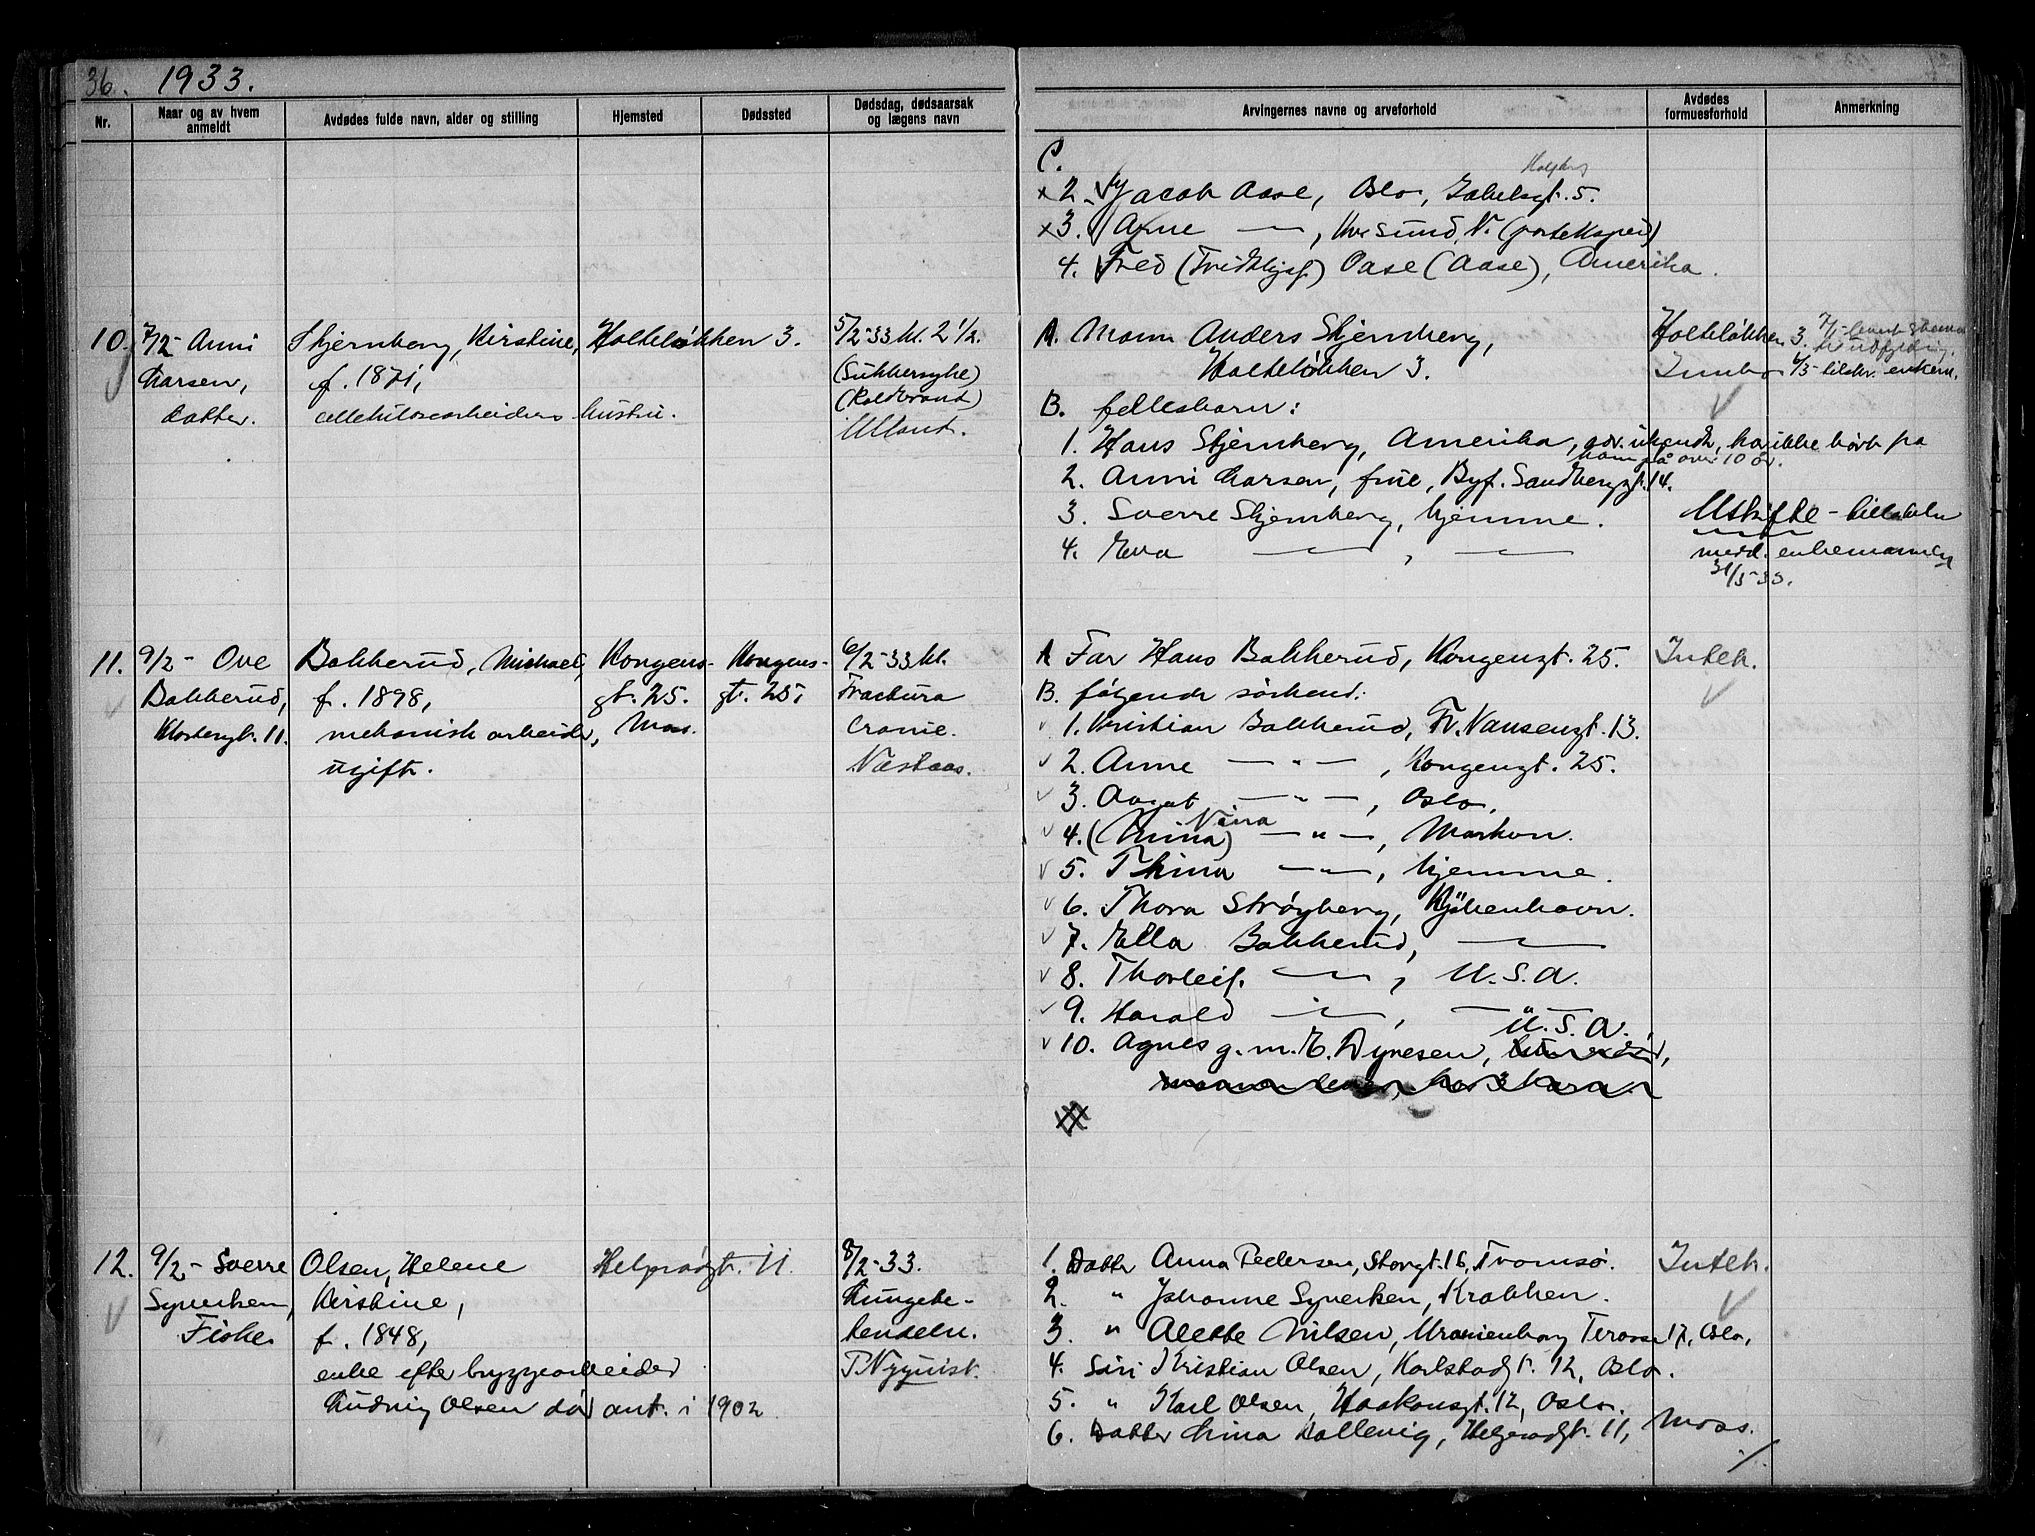 36. 1933.
Nr.
Naar og av hvem anmeldt
Avdødes fulde navn, alder og stilling
Hjemsted
Dødssted
Dødsdag, dødsaarsak og lægens navn
Arvingernes navne og arveforhold
Avdødes formuesforhold
Anmerkning
C.
x 2. Jacob Aase, Oslo,
x 3. Arne —
4. Fred Oase (Aase), Amerika.
10. 7/2 - Anni
Larsen,
datter.
Stjernberg, Kirstine,
f. 1871,
cellulosearbeiders hustru.
Holteløkken 3.
5/2-33 kl. 2 1/2.
(Sukkersyke)
(Koldbrand)
Ulland.
A. Mann Anders Stjernberg,
Holteløkken 3.
B. fellesbarn:
1. Hans Stjernberg, Amerika, adr. ukendt, har ikke hørt fra
ham på over 10 år.
2. Anni Larsen, frue, Byf. Sandbergsgt. 14.
3. Sverre Stjernberg, hjemme.
4. Eva — , —
Holteløkken 3.
Innbo
Uskifte -
medd. enkemannen
31/5-33.
11. 9/2 - Ove
Bakkerud,
Klostergt. 11.
Bakkerud, Michael,
f. 1898,
mekanisk arbeider,
ugift.
Kongens-
gt. 25.
Moss.
Kongens-
gt. 25.
6/2-33 kl.
Fractura
Cranie.
Næstaas.
A Far Hans Bakkerud, Kongensgt. 25.
B. følgende søskend:
1. Kristian Bakkerud, Fr. Nansensgt. 13.
2. Anne — " — , Kongensgt. 25.
3. August — " — , Oslo.
Nina
4. — " — , Marken.
5. Thina — " — , hjemme.
6. Thora Strøyberg, Kjøbenhavn.
7. Ella Bakkerud, —
8. Thorleif. — , U.S.A.
9. Harald — , — " —
U.S.A.
10. Agnes g. m. E. Dynesen,
Intet.
12. 9/2 - Sverre
Syversen,
Fiske
Olsen, Helene
Kirstine,
f. 1848,
enke efter bryggearbeider
Ludvig Olsen død ant. i 1902
Helgerødgt. 11.
8/2-33.
Lungebe-
tendelse.
T. Nyquist.
1. Datter Anna Pedersen, Storgt. 16, Tromsø.
2. " Johanne Syversen, Krabben.
3. " Alette Nilsen, Uranienborg Terasse 17, Oslo,
4. Søn Kristian Olsen, Karlstadgt. 12, Oslo.
5. " Karl Olsen, Haakonsgt. 12, Oslo.
6. Datter Lina Dallevig, Helgerødgt. 11, Moss.
Intet.